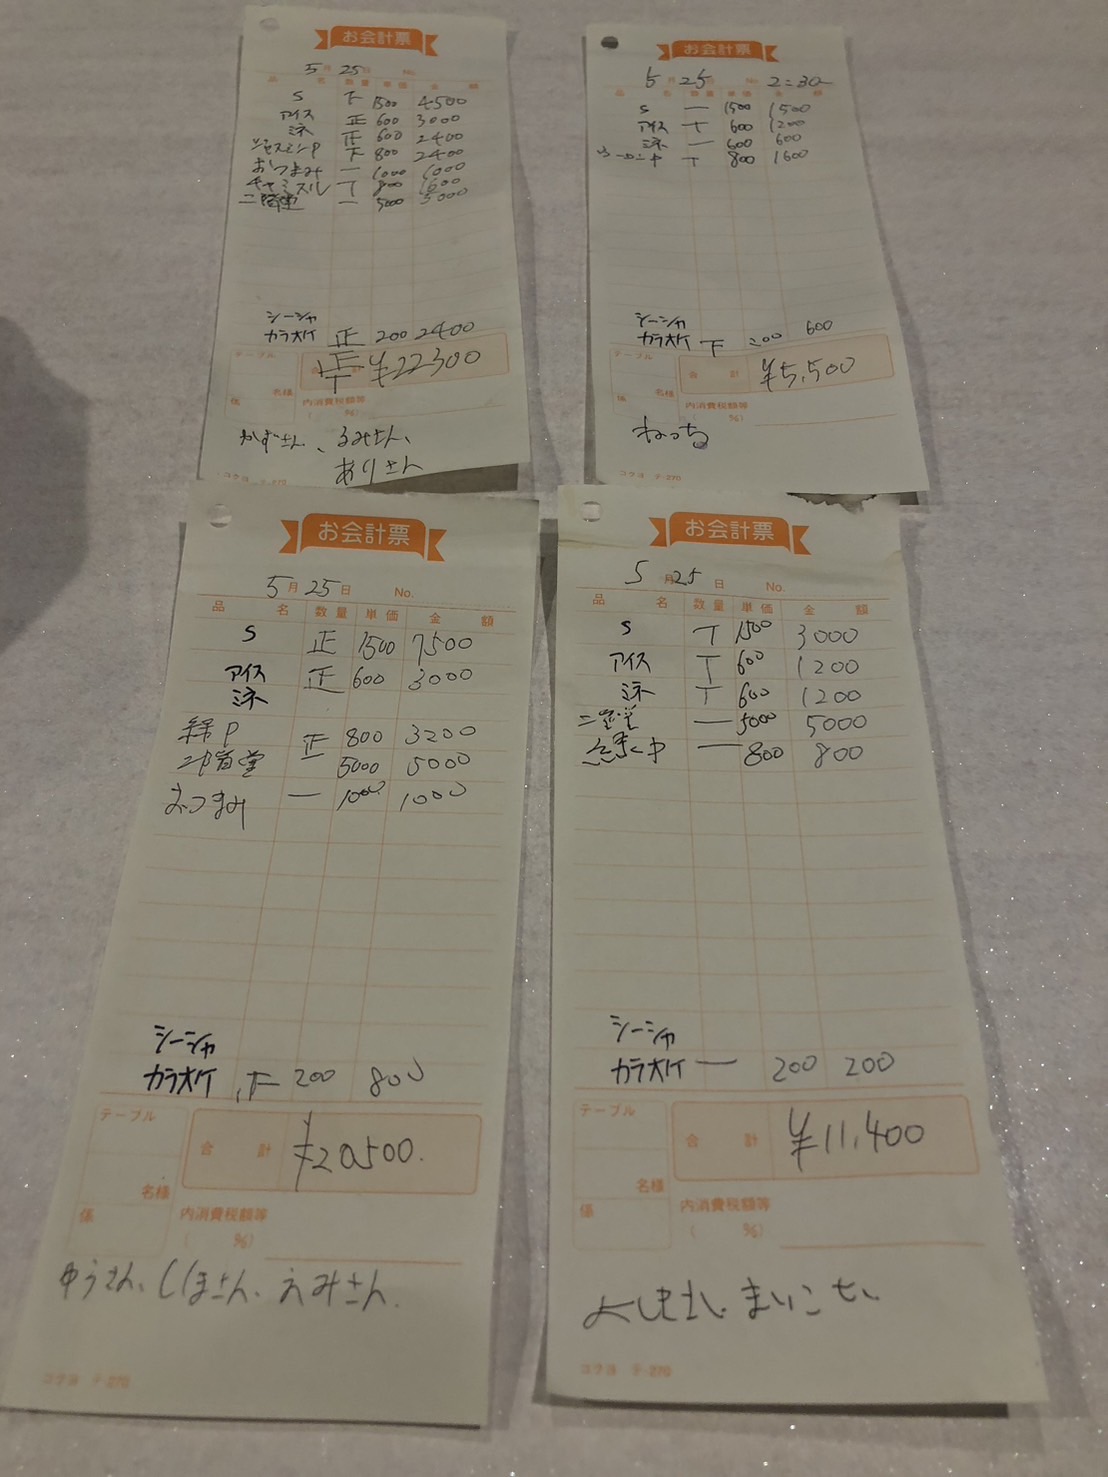 お会計票
5月25日 No.
品名 数量 単価 金額
S 下 1500 4500
アイス 正 600 3000
ミネ 正 600 2400
ジャスミンP 下 800 2400
おつまみ 一 1000 1000
キャミスル 丁 800 1600
二階堂 一 5000 5000
シーシャ
カラオケ 正 200 2400
テーブル
合計 ¥22300
名様
係 内消費税額等
( %)
かずさん、るみさん、
ありさん
コクヨ テ-270
お会計票
5月25日 No. 2:30
品名 数量 単価 金額
S 一 1500 1500
アイス 丁 600 1200
ミネ 一 600 600
ウーロンP 丁 800 1600
シーシャ
カラオケ 下 200 600
テーブル
合計 ¥5,500
名様
係 内消費税額等
( %)
ねっち
コクヨ テ-270
お会計票
5月25日 No.
品名 数量 単価 金額
S 正 1500 7500
アイス 正 600 3000
ミネ
緑P 正 800 3200
二階堂 一 5000 5000
おつまみ 一 1000 1000
シーシャ
カラオケ 下 200 800
テーブル
合計 ¥20500.
名様
係 内消費税額等
( %)
ゆうさん、ししまさん、えみさん.
コクヨ テ-270
お会計票
5月25日 No.
品名 数量 単価 金額
S 丁 1500 3000
アイス 丁 600 1200
ミネ 丁 600 1200
二階堂 一 5000 5000
一 800 800
シーシャ
カラオケ 一 200 200
テーブル
合計 ¥11,400
名様
係 内消費税額等
( %)
コクヨ テ-270